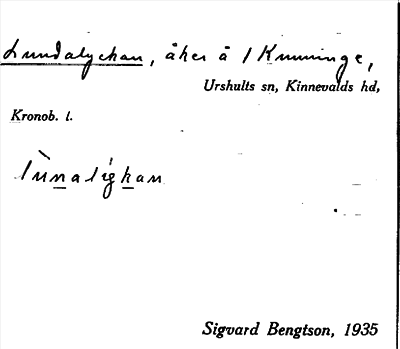 Lundalyckan, åker å 1 Krunninge,
Urshults sn, Kinnevalds hd,
Kronob. l.
Sigvard Bengtson, 1935